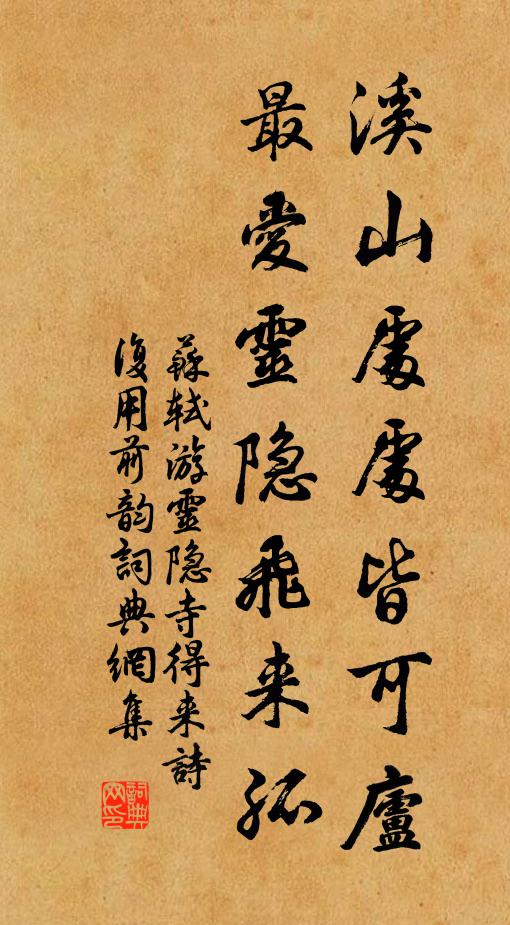 溪山處處皆可廬
最愛靈隱飛来孤
蘇軾游靈隱寺得来詩
復用前韵詞典網集
詞典网印